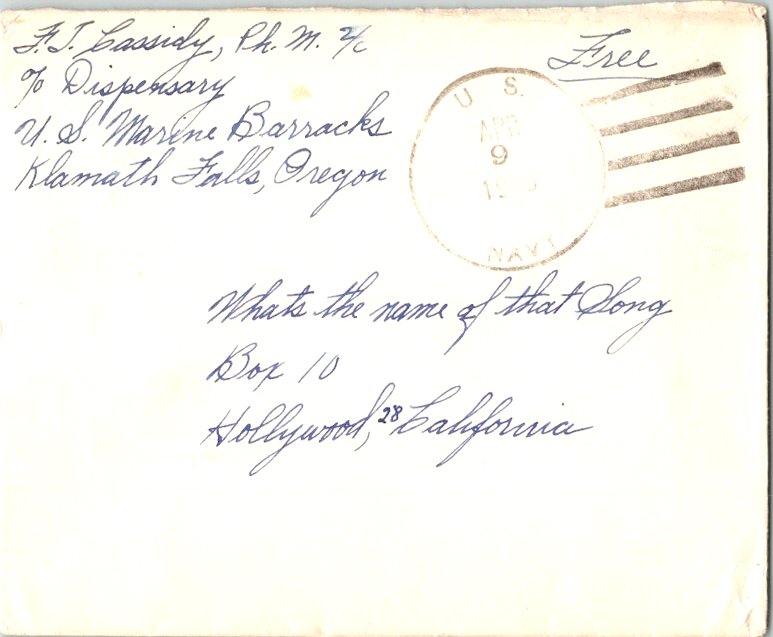 F. J. Cassidy, Ph. M. 2/c
c/o Dispensary
U. S. Marine Barracks
Klamath Falls, Oregon
Free
U. S.
APR
9
NAVY
Whats the name of that Song
Box 10
Hollywood, 28 California